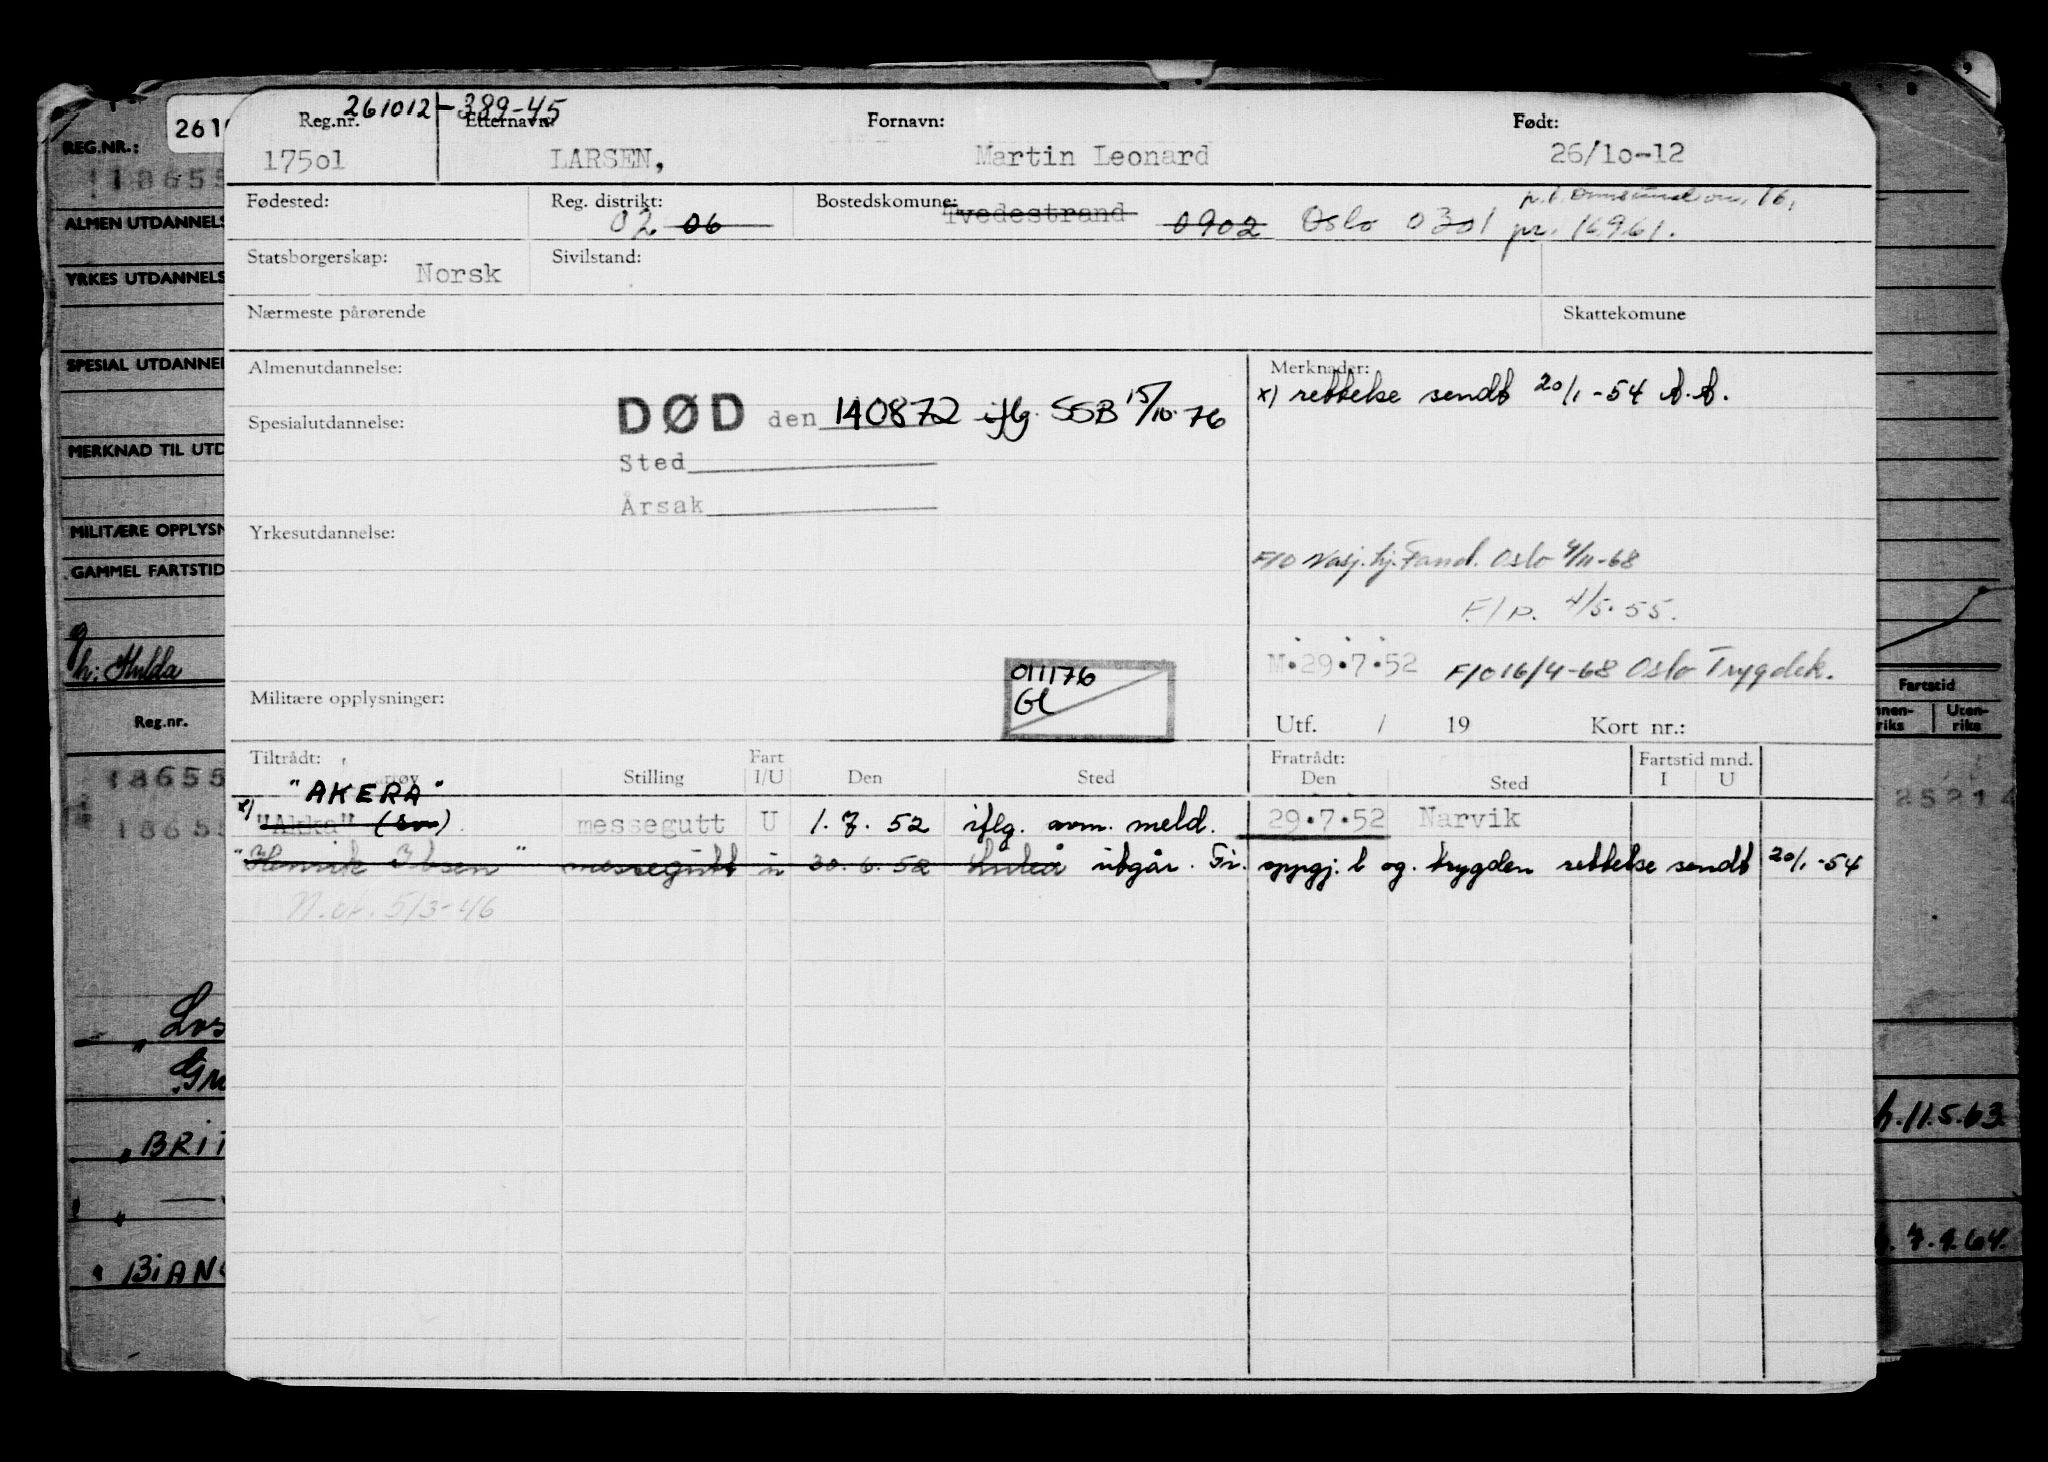 261012-389-45
Reg.nr. Etternavn: Fornavn: Født:
17501 LARSEN, Martin Leonard 26/10-12
Fødested: Reg. distrikt: Bostedskomune:
02 06 Tvedestrand 0902 Oslo 0301 pr. 16961.
Statsborgerskap: Norsk Sivilstand:
Nærmeste pårørende Skattekomune
Almenutdannelse: Merknader:
x) rettelse sendt 20/1-54 A.A.
DØD den 140872 iflg. SSB 15/10-76
Spesialutdannelse:
Sted
Årsak
Yrkesutdannelse:
F/O Nasj.hj.Fand. Oslo 4/11-68
F/p. 4/5-55.
M.29.7.52 F/O 16/4-68 Oslo Trygdek.
011176
Gl
Militære opplysninger:
Utf. / 19 Kort nr.:
Tiltrådt: Fart Fratrådt: Fartstid mnd.
Stilling I/U Den Sted Den Sted I U
"AKERA"
x) "Akka" messegutt U 1.7.52 iflg. avm. meld. 29.7.52 Narvik
"Henrik Ibsen" messegutt u 30.6.52 Luleå utgår. Fr. oppgj. t og. trygden rettelse sendt 20/1-54
N.at. 5/3-46
261
REG.NR.:
18655
ALMEN UTDANNELS
YRKES UTDANNELS
SPESIAL UTDANNEL
MERKNAD TIL UTD
MILITÆRE OPPLYSN
GAMMEL FARTSTID
g
h: Hulda
Reg.nr.
18655
18655
"Los
Gru
"BRIT
"BIAN
Fartstid
nnen- Uten-
riks riks
25214
h.11.5.63
7.9.64.